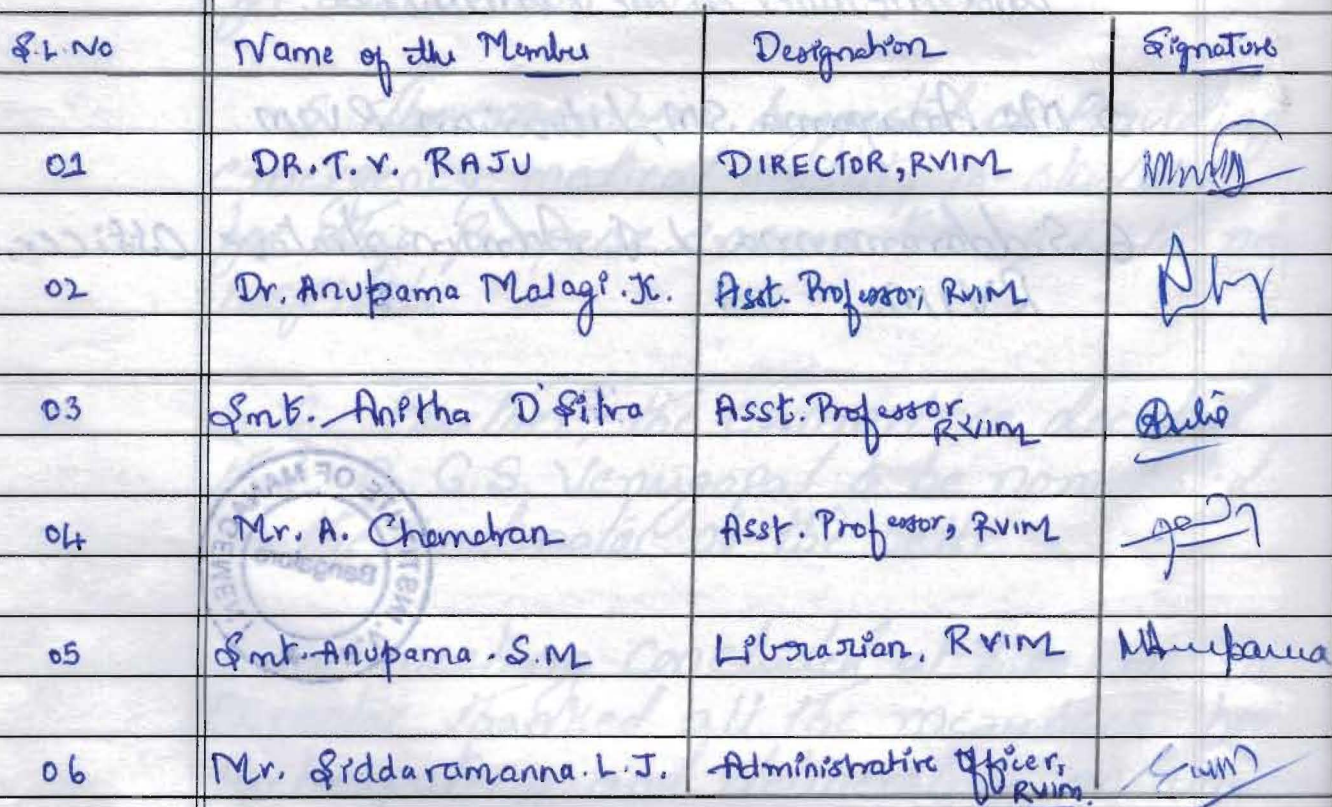 S.L.No Name of the Member Designation Signature
01 DR. T. V. RAJU DIRECTOR, RVIM
02 Dr. Anupama Malagi. K. Asst. Professor, RVIM
03 Smt. Anitha D'Silva Asst. Professor, RVIM
04 Mr. A. Chandran Asst. Professor, RVIM
05 Smt. Anupama. S.M Librarian, RVIM Anupama
06 Mr. Siddaramanna. L. J. Administrative Officer, RVIM.